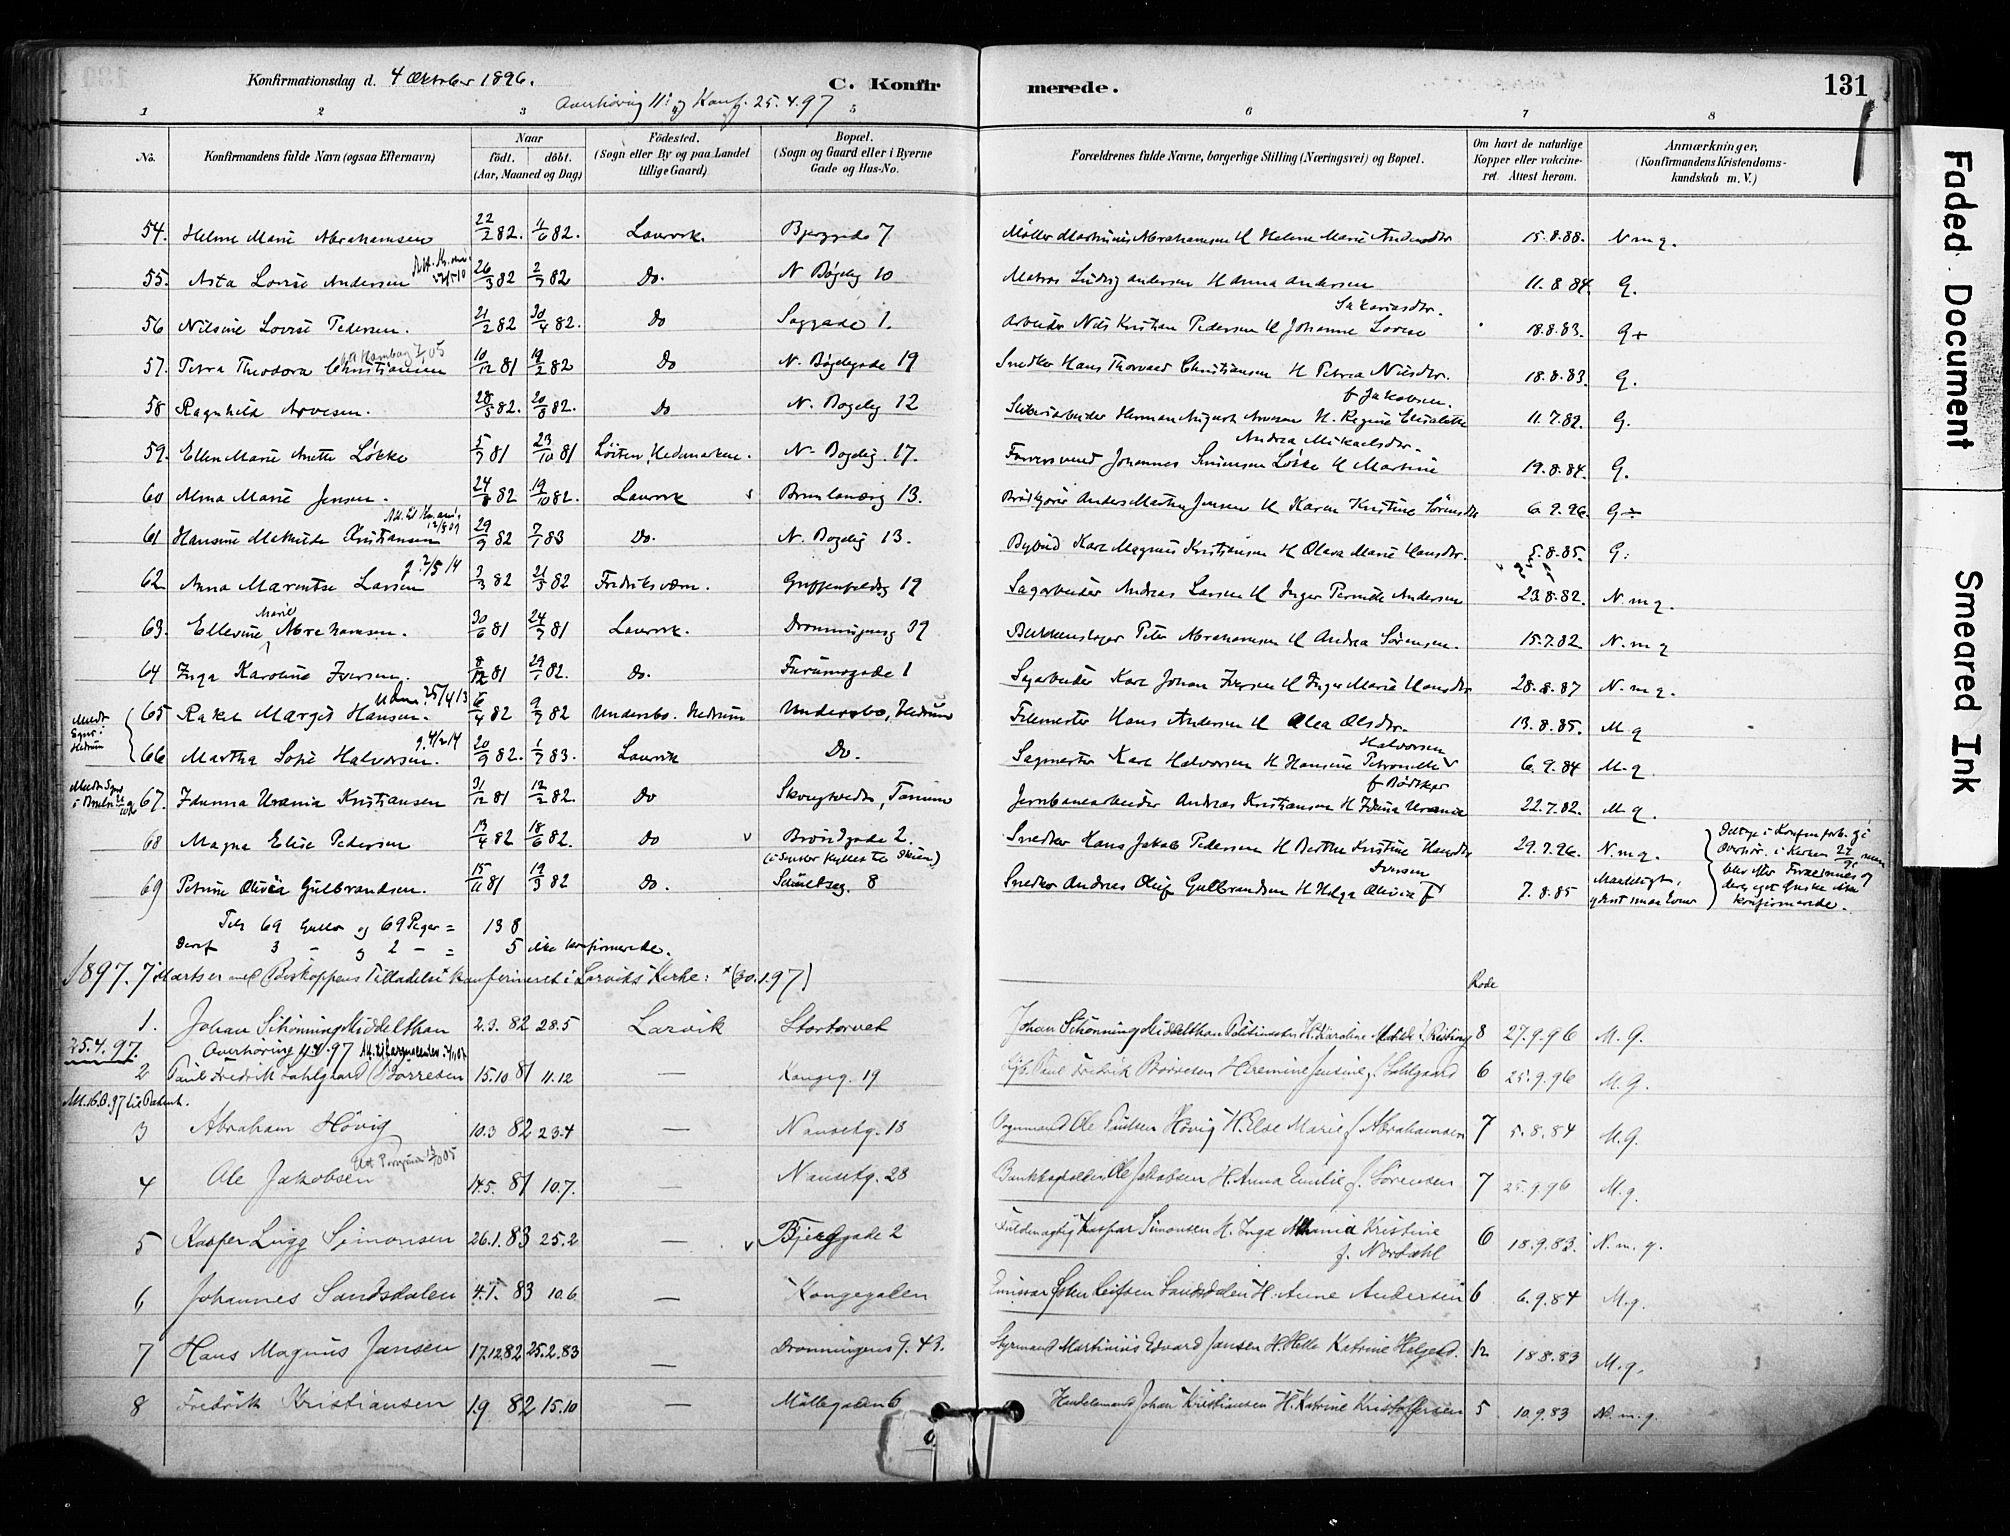 Konfirmationsdag d. 4 Oktober 1896.
C. Konfirmerede.
131
Overhøring 11: og Konf. 25.4.97
1 2 3 5 6 7 8
No. Konfirmandens fulde Navn (ogsaa Efternavn) Naar födt. döbt. (Aar, Maaned og Dag) Födested. (Sogn eller By og paa Landet tillige Gaard) Bopæl. (Sogn og Gaard eller i Byerne Gade og Hus-No. Forældrenes fulde Navne, borgerlige Stilling (Næringsvei) og Bopæl. Om havt de naturlige Kopper eller vakcineret. Attest herom. Anmærkninger, (Konfirmandens Kristendomskundskab m. V.)
54. Helene Marie Abrahamsen 22/2 82. 4/6 82. Laurvik. Bjerggade 7 Møller Martinius Abrahamsen H Helene Marie Andersdtr 15.8.88. N m g.
55. Asta Lovise Andersen 26/3 82 2/7 82 Do. N Bøgelg 10 Matros Ludvig Andersen H Anna Andersen 11.8 84. G.
56 Nilsine Lovise Pedersen. 21/2 82 30/4 82. Do Saggade 1. Arbeider Nils Kristian Pedersen H Johanne Lovise Sakariasdtr. 18.8.83. G+
57. Petra Theodora Christiansen 10/12 81 19/2 82 Do N. Bøgelgade 19 Snedker Hans Thorvald Christiansen H Petrea Nilsdtr. 18.8.83. G.
58 Ragnhild Arvesen. 28/5 82. 20/8 82. Do N. Bogelg 12 Herman August Arvesen H. Regine Elisabeth f Jakobsen. 11.7.82. G.
59. Ellen Marie Anette Løkke 5/7 81 23/10 81 Løiten, Hedemarken. N. Bogelg. 17. Farversvend Johannes Simensen Løkke H Martine Andrea Mikaelsdtr. 19.8.84. G.
60 Alma Marie Jensen. 24/8 82 19/10 82. Laurvik Brunlanæsg 13. Anders Martin Jensen H Karen Kristine Sørensdtr 6.9.96. G÷
61 Hansine Mathilde Kristiansen 29/9 82 7/1 83 Do. N. Bogelg 13. Bybud Karl Magnus Kristiansen H Olava Marie Hansdtr. 5.8.85. G:
62 Anna Marentse Larsen g 2/5 14 3/3 82 21/5 82 Fredriksværn. Griffenfeldsg 19 Sagarbeider Andreas Larsen H Inger Pernille Andersen 23.8.82. N. m g.
63. Ellevine Marie Abrahamsen. 30/6 81 24/7 81 Laurvik. Dronningensg 39 Peter Abrahamsen H Andrea Sørensen. 15.7.82 N. m g
64 Inga Karoline Iversen. 8/12 81 29/1 82. Do. Furumogade 1 Sagarbeider Karl Johan Iversen H Inger Marie Hansdtr 28.8.87 N. m g.
65 Rakel Margit Hansen. 25/4 13 6/4 82 9/7 82 Undersbo. Hedrum Undersbo, Hedrum Filemester Hans Andersen H Olea Olsdtr. 13.8.85. M g
66 Martha Sofie Halvorsen. g. 4/2 14 20/9 82. 1/7 83. Laurvik Do. Sagmester Karl Halvorsen H Hansine Petronelle Halvorsen 6.9.84 M.g.
67. Idunna Urania Kristiansen 31/12 81 12/2 82. Do Tanum Jernbanearbeider Andreas Kristiansen H Idunna Urania f Bødker 22.7.82. M g.
68 Magna Elise Pedersen 13/4 82 18/6 82. Do Brøndgade 2 Snedker Hans Jakob Pedersen H Berthe Kristine Hansdtr 29.7.96. N. m g.
69 Petrine Olivia Gulbrandsen. 15/11 81 19/3 82 Do. Schultzeg. 8 Snedker Andreas Oluf Gulbrandsen H Helga Olivia f Iversen 7.8.85 Maadeligt,
konfirmerede.
Tils 69 Gutter og 69 Piger = 138
Deraf 3 - og 2 - = 5 ikke konfirmerede.
1897. 7 Marts er med Biskoppens Tilladelse konfirmeret i Larviks Kirke: (30.1.97)
Rode
1. Johan Schønning Middelthon 2.3. 82 28.5 Larvik Stortorvet Johan Schønning Middelthon Politimester H. Karoline 8 27.9.96 M. G.
25.4.97. Overhøring 11.4.97
2 Paul Fredrik Sahlgaard Borresen 15.10 81 11.12 — Kongeg. 19 Paul Fredrik Børresen H Hermine Jensine f. Sahlgaard 6 25.9.96 M. G.
3 Abraham Høvig 10.3 82 23.4 — Nansetg. 18 Vognmand Ole Paulsen Høvig H. Else Marie f. Abrahamsen 7 5.8.84 M. G.
4 Ole Jakobsen 14.5. 81 10.7. — Nansetg. 28 Ole Jakobsen H. Anna Emilie f. Sørensen 7 25.9.96 M. g.
5 Kasper Lugg Simonsen 26.1. 83 25.2 — Bjerggade 2 Fuldmægtig Kaspar Simonsen H. Inga Kristine f. Nordahl 6 18.9.83. N. m. g.
6 Johannes Sandsdalen 4.1. 83 10.6 — Kongegaden Sandsdalen H. Anne Andersen 6 6.9.84 M. g.
7 Hans Magnus Jansen 17.12.82 25.2.83 — Dronningens g. 43. Styrmand Martinius Edvard Jansen H. Helle Katrine Helgesd. 12 18.8.83 M. g.
8 Fredrik Kristiansen 1.9 82 15.10 — Møllegaden 6 Handelsmand Johan Kristiansen H. Katrine Kristoffersen 5 10.9.83 N. m. g.
Faded Document
Smeared Ink